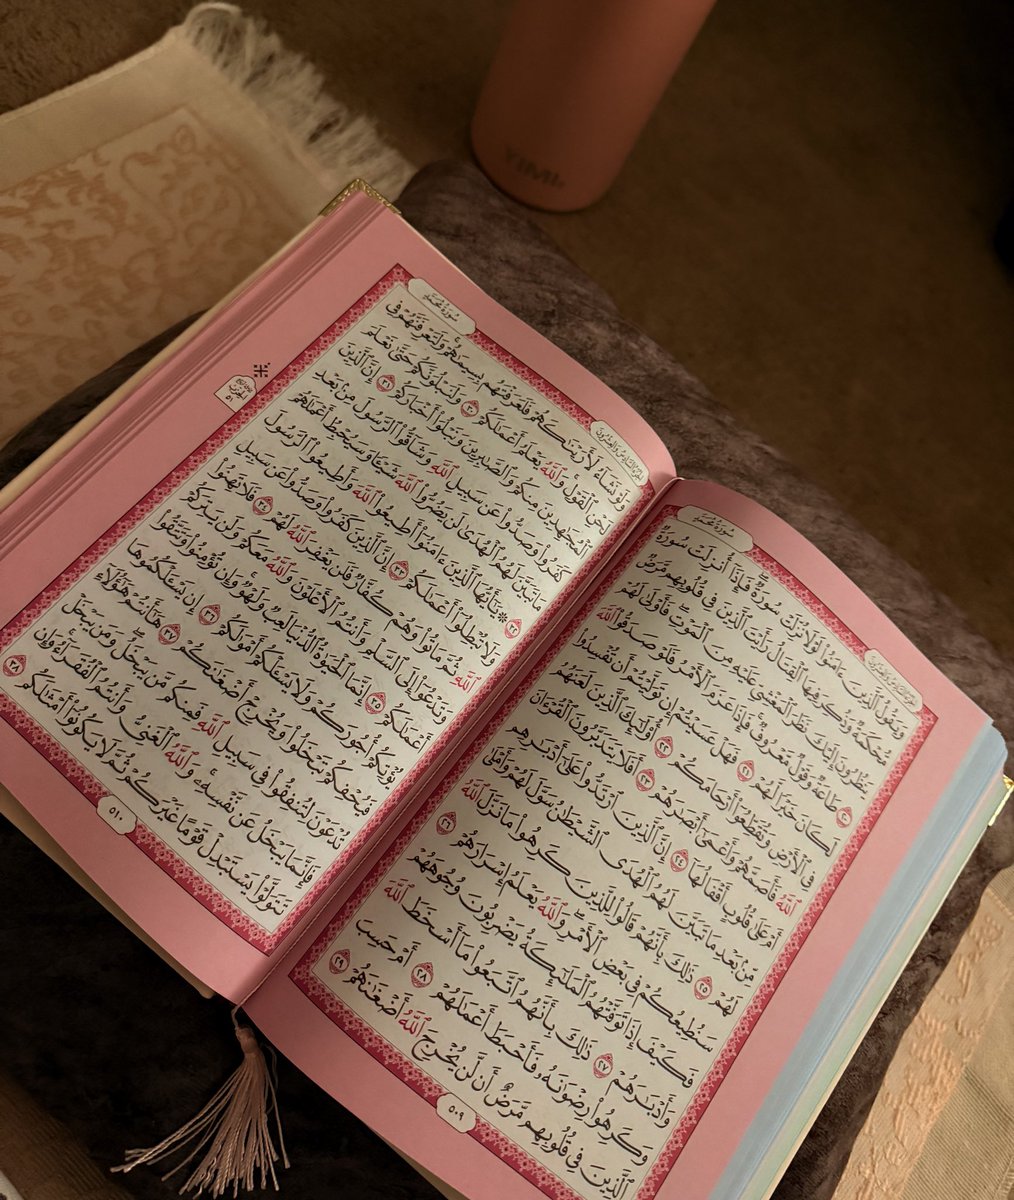 YIMI.
سُورَةُ مُحَمَّدٍ
الجُزْءُ السَّادِسُ وَالعِشْرُونَ
وَيَقُولُ ٱلَّذِينَ ءَامَنُوا۟ لَوْلَا نُزِّلَتْ سُورَةٌ ۖ فَإِذَآ أُنزِلَتْ سُورَةٌ
مُّحْكَمَةٌ وَذُكِرَ فِيهَا ٱلْقِتَالُ ۙ رَأَيْتَ ٱلَّذِينَ فِى قُلُوبِهِم مَّرَضٌ
يَنظُرُونَ إِلَيْكَ نَظَرَ ٱلْمَغْشِىِّ عَلَيْهِ مِنَ ٱلْمَوْتِ ۖ فَأَوْلَىٰ لَهُمْ
٢٠ طَاعَةٌ وَقَوْلٌ مَّعْرُوفٌ ۚ فَإِذَا عَزَمَ ٱلْأَمْرُ فَلَوْ صَدَقُوا۟ ٱللَّهَ
لَكَانَ خَيْرًا لَّهُمْ ٢١ فَهَلْ عَسَيْتُمْ إِن تَوَلَّيْتُمْ أَن تُفْسِدُوا۟
فِى ٱلْأَرْضِ وَتُقَطِّعُوٓا۟ أَرْحَامَكُمْ ٢٢ أُو۟لَٰٓئِكَ ٱلَّذِينَ لَعَنَهُمُ
ٱللَّهُ فَأَصَمَّهُمْ وَأَعْمَىٰٓ أَبْصَٰرَهُمْ ٢٣ أَفَلَا يَتَدَبَّرُونَ ٱلْقُرْءَانَ
أَمْ عَلَىٰ قُلُوبٍ أَقْفَالُهَآ ٢٤ إِنَّ ٱلَّذِينَ ٱرْتَدُّوا۟ عَلَىٰٓ أَدْبَٰرِهِم
مِّنۢ بَعْدِ مَا تَبَيَّنَ لَهُمُ ٱلْهُدَى ۙ ٱلشَّيْطَٰنُ سَوَّلَ لَهُمْ وَأَمْلَىٰ
لَهُمْ ٢٥ ذَٰلِكَ بِأَنَّهُمْ قَالُوا۟ لِلَّذِينَ كَرِهُوا۟ مَا نَزَّلَ ٱللَّهُ
سَنُطِيعُكُمْ فِى بَعْضِ ٱلْأَمْرِ ۖ وَٱللَّهُ يَعْلَمُ إِسْرَارَهُمْ ٢٦
فَكَيْفَ إِذَا تَوَفَّتْهُمُ ٱلْمَلَٰٓئِكَةُ يَضْرِبُونَ وُجُوهَهُمْ
وَأَدْبَٰرَهُمْ ٢٧ ذَٰلِكَ بِأَنَّهُمُ ٱتَّبَعُوا۟ مَآ أَسْخَطَ ٱللَّهَ
وَكَرِهُوا۟ رِضْوَٰنَهُۥ فَأَحْبَطَ أَعْمَٰلَهُمْ ٢٨ أَمْ حَسِبَ
ٱلَّذِينَ فِى قُلُوبِهِم مَّرَضٌ أَن لَّن يُخْرِجَ ٱللَّهُ أَضْغَٰنَهُمْ ٢٩
٥٠٩
سُورَةُ مُحَمَّدٍ
الجُزْءُ السَّادِسُ وَالعِشْرُونَ
وَلَوْ نَشَآءُ لَأَرَيْنَٰكَهُمْ فَلَعَرَفْتَهُم بِسِيمَٰهُمْ ۚ وَلَتَعْرِفَنَّهُمْ فِى
لَحْنِ ٱلْقَوْلِ ۚ وَٱللَّهُ يَعْلَمُ أَعْمَٰلَكُمْ ٣٠ وَلَنَبْلُوَنَّكُمْ حَتَّىٰ نَعْلَمَ
ٱلْمُجَٰهِدِينَ مِنكُمْ وَٱلصَّٰبِرِينَ وَنَبْلُوَا۟ أَخْبَارَكُمْ ٣١ إِنَّ ٱلَّذِينَ
كَفَرُوا۟ وَصَدُّوا۟ عَن سَبِيلِ ٱللَّهِ وَشَآقُّوا۟ ٱلرَّسُولَ مِنۢ بَعْدِ
مَا تَبَيَّنَ لَهُمُ ٱلْهُدَىٰ لَن يَضُرُّوا۟ ٱللَّهَ شَيْـًٔا وَسَيُحْبِطُ أَعْمَٰلَهُمْ
٣٢ ۞ يَٰٓأَيُّهَا ٱلَّذِينَ ءَامَنُوٓا۟ أَطِيعُوا۟ ٱللَّهَ وَأَطِيعُوا۟ ٱلرَّسُولَ
وَلَا تُبْطِلُوٓا۟ أَعْمَٰلَكُمْ ٣٣ إِنَّ ٱلَّذِينَ كَفَرُوا۟ وَصَدُّوا۟ عَن سَبِيلِ
ٱللَّهِ ثُمَّ مَاتُوا۟ وَهُمْ كُفَّارٌ فَلَن يَغْفِرَ ٱللَّهُ لَهُمْ ٣٤ فَلَا تَهِنُوا۟
وَتَدْعُوٓا۟ إِلَى ٱلسَّلْمِ وَأَنتُمُ ٱلْأَعْلَوْنَ وَٱللَّهُ مَعَكُمْ وَلَن يَتِرَكُمْ
أَعْمَٰلَكُمْ ٣٥ إِنَّمَا ٱلْحَيَوٰةُ ٱلدُّنْيَا لَعِبٌ وَلَهْوٌ ۚ وَإِن تُؤْمِنُوا۟ وَتَتَّقُوا۟
يُؤْتِكُمْ أُجُورَكُمْ وَلَا يَسْـَٔلْكُمْ أَمْوَٰلَكُمْ ٣٦ إِن يَسْـَٔلْكُمُوهَا
فَيُحْفِكُمْ تَبْخَلُوا۟ وَيُخْرِجْ أَضْغَٰنَكُمْ ٣٧ هَٰٓأَنتُمْ هَٰٓؤُلَآءِ
تُدْعَوْنَ لِتُنفِقُوا۟ فِى سَبِيلِ ٱللَّهِ فَمِنكُم مَّن يَبْخَلُ ۖ وَمَن يَبْخَلْ
فَإِنَّمَا يَبْخَلُ عَن نَّفْسِهِۦ ۚ وَٱللَّهُ ٱلْغَنِىُّ وَأَنتُمُ ٱلْفُقَرَآءُ ۚ وَإِن
تَتَوَلَّوْا۟ يَسْتَبْدِلْ قَوْمًا غَيْرَكُمْ ثُمَّ لَا يَكُونُوٓا۟ أَمْثَٰلَكُم ٣٨
٥١٠